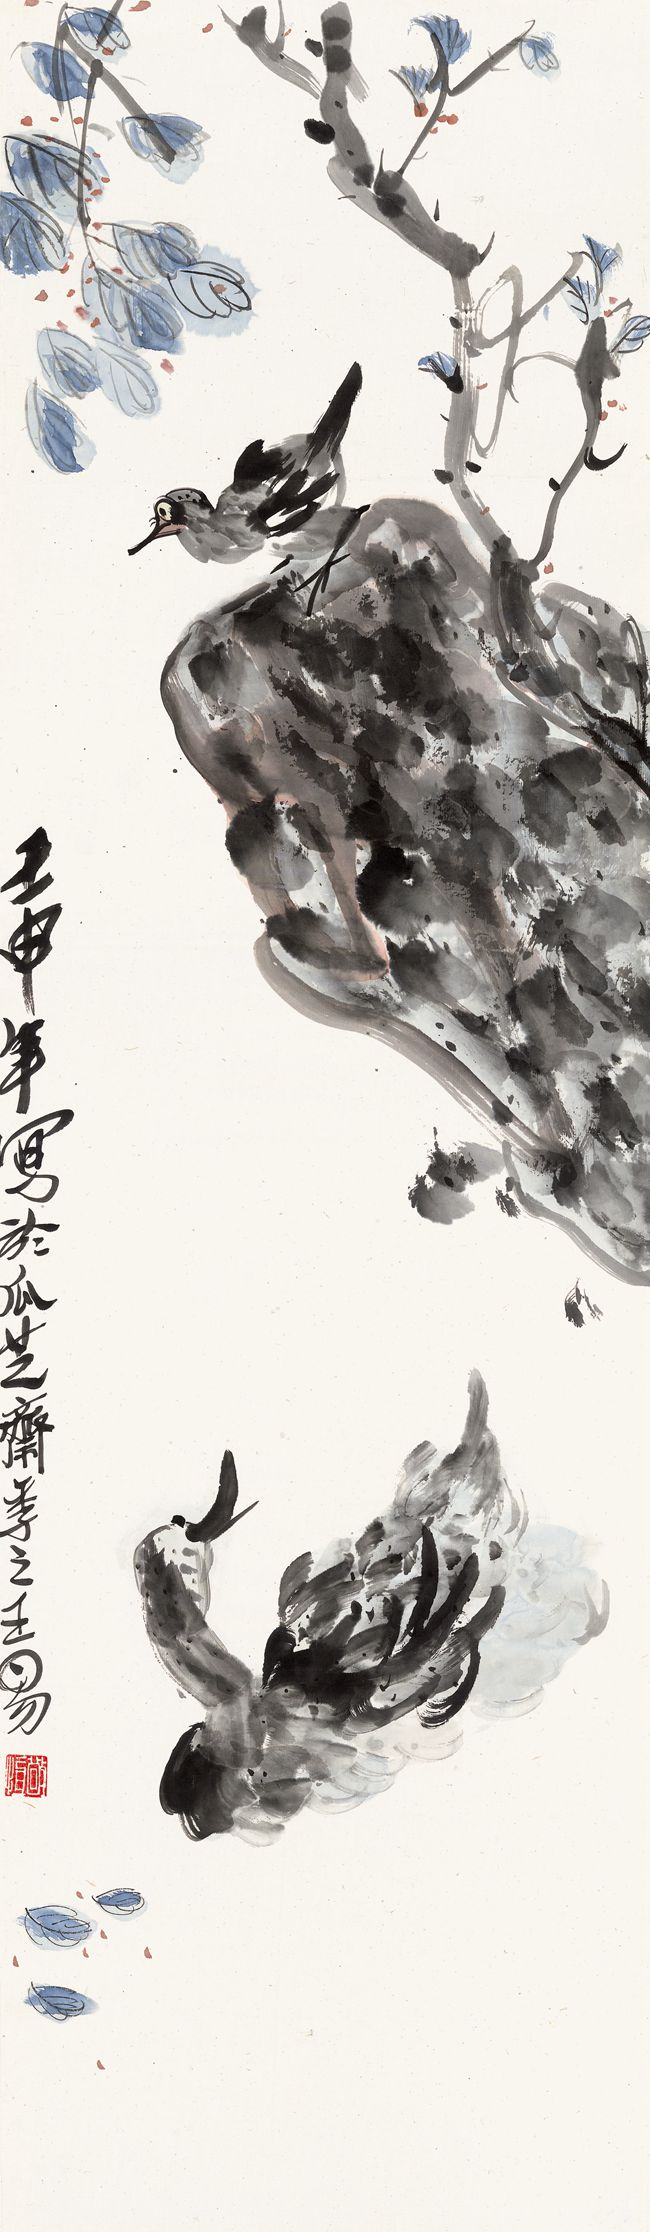 壬申年寫於瓜芝齋季之王易